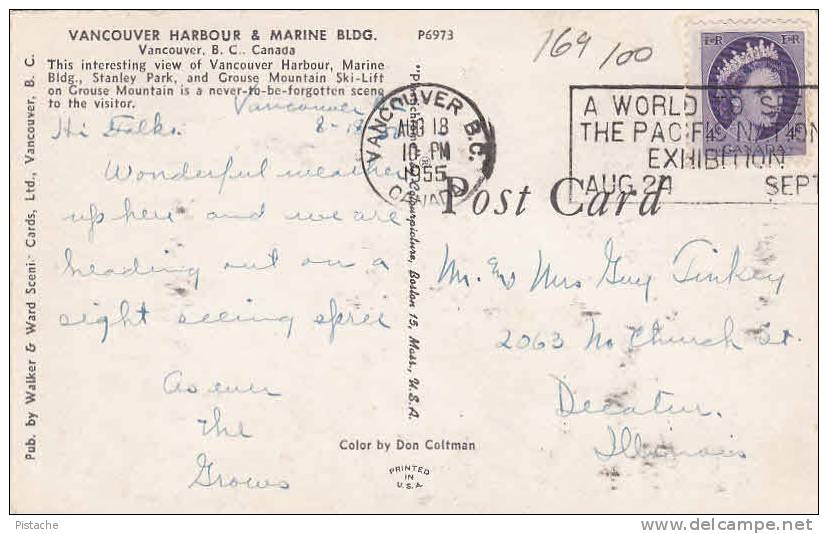 VANCOUVER HARBOUR & MARINE BLDG.
Vancouver, B. C., Canada
This interesting view of Vancouver Harbour, Marine
Bldg., Stanley Park, and Grouse Mountain Ski-Lift
on Grouse Mountain is a never-to-be-forgotten scene
to the visitor.
P6973
Vancouver
8-18
Hi Folks.
Wonderful weather
up here and we are
heading out on a
sight seeing spree
As ever
The
Grows
Pub. by Walker & Ward Scenic Cards, Ltd., Vancouver, B. C.
Colourpicture, Boston 15, Mass., U.S.A.
Color by Don Coltman
PRINTED
IN
U.S.A.
169/00
VANCOUVER B.C.
AUG 18
10 PM
1955
CANADA
A WORLD TO SE
THE PACIFIC NATION
EXHIBITION
AUG 24 SEPT
Post Card
Mr. & Mrs Guy Tinkey
2063 No Church St.
Decatur.
Illinois
Pistache
www.delcampe.net